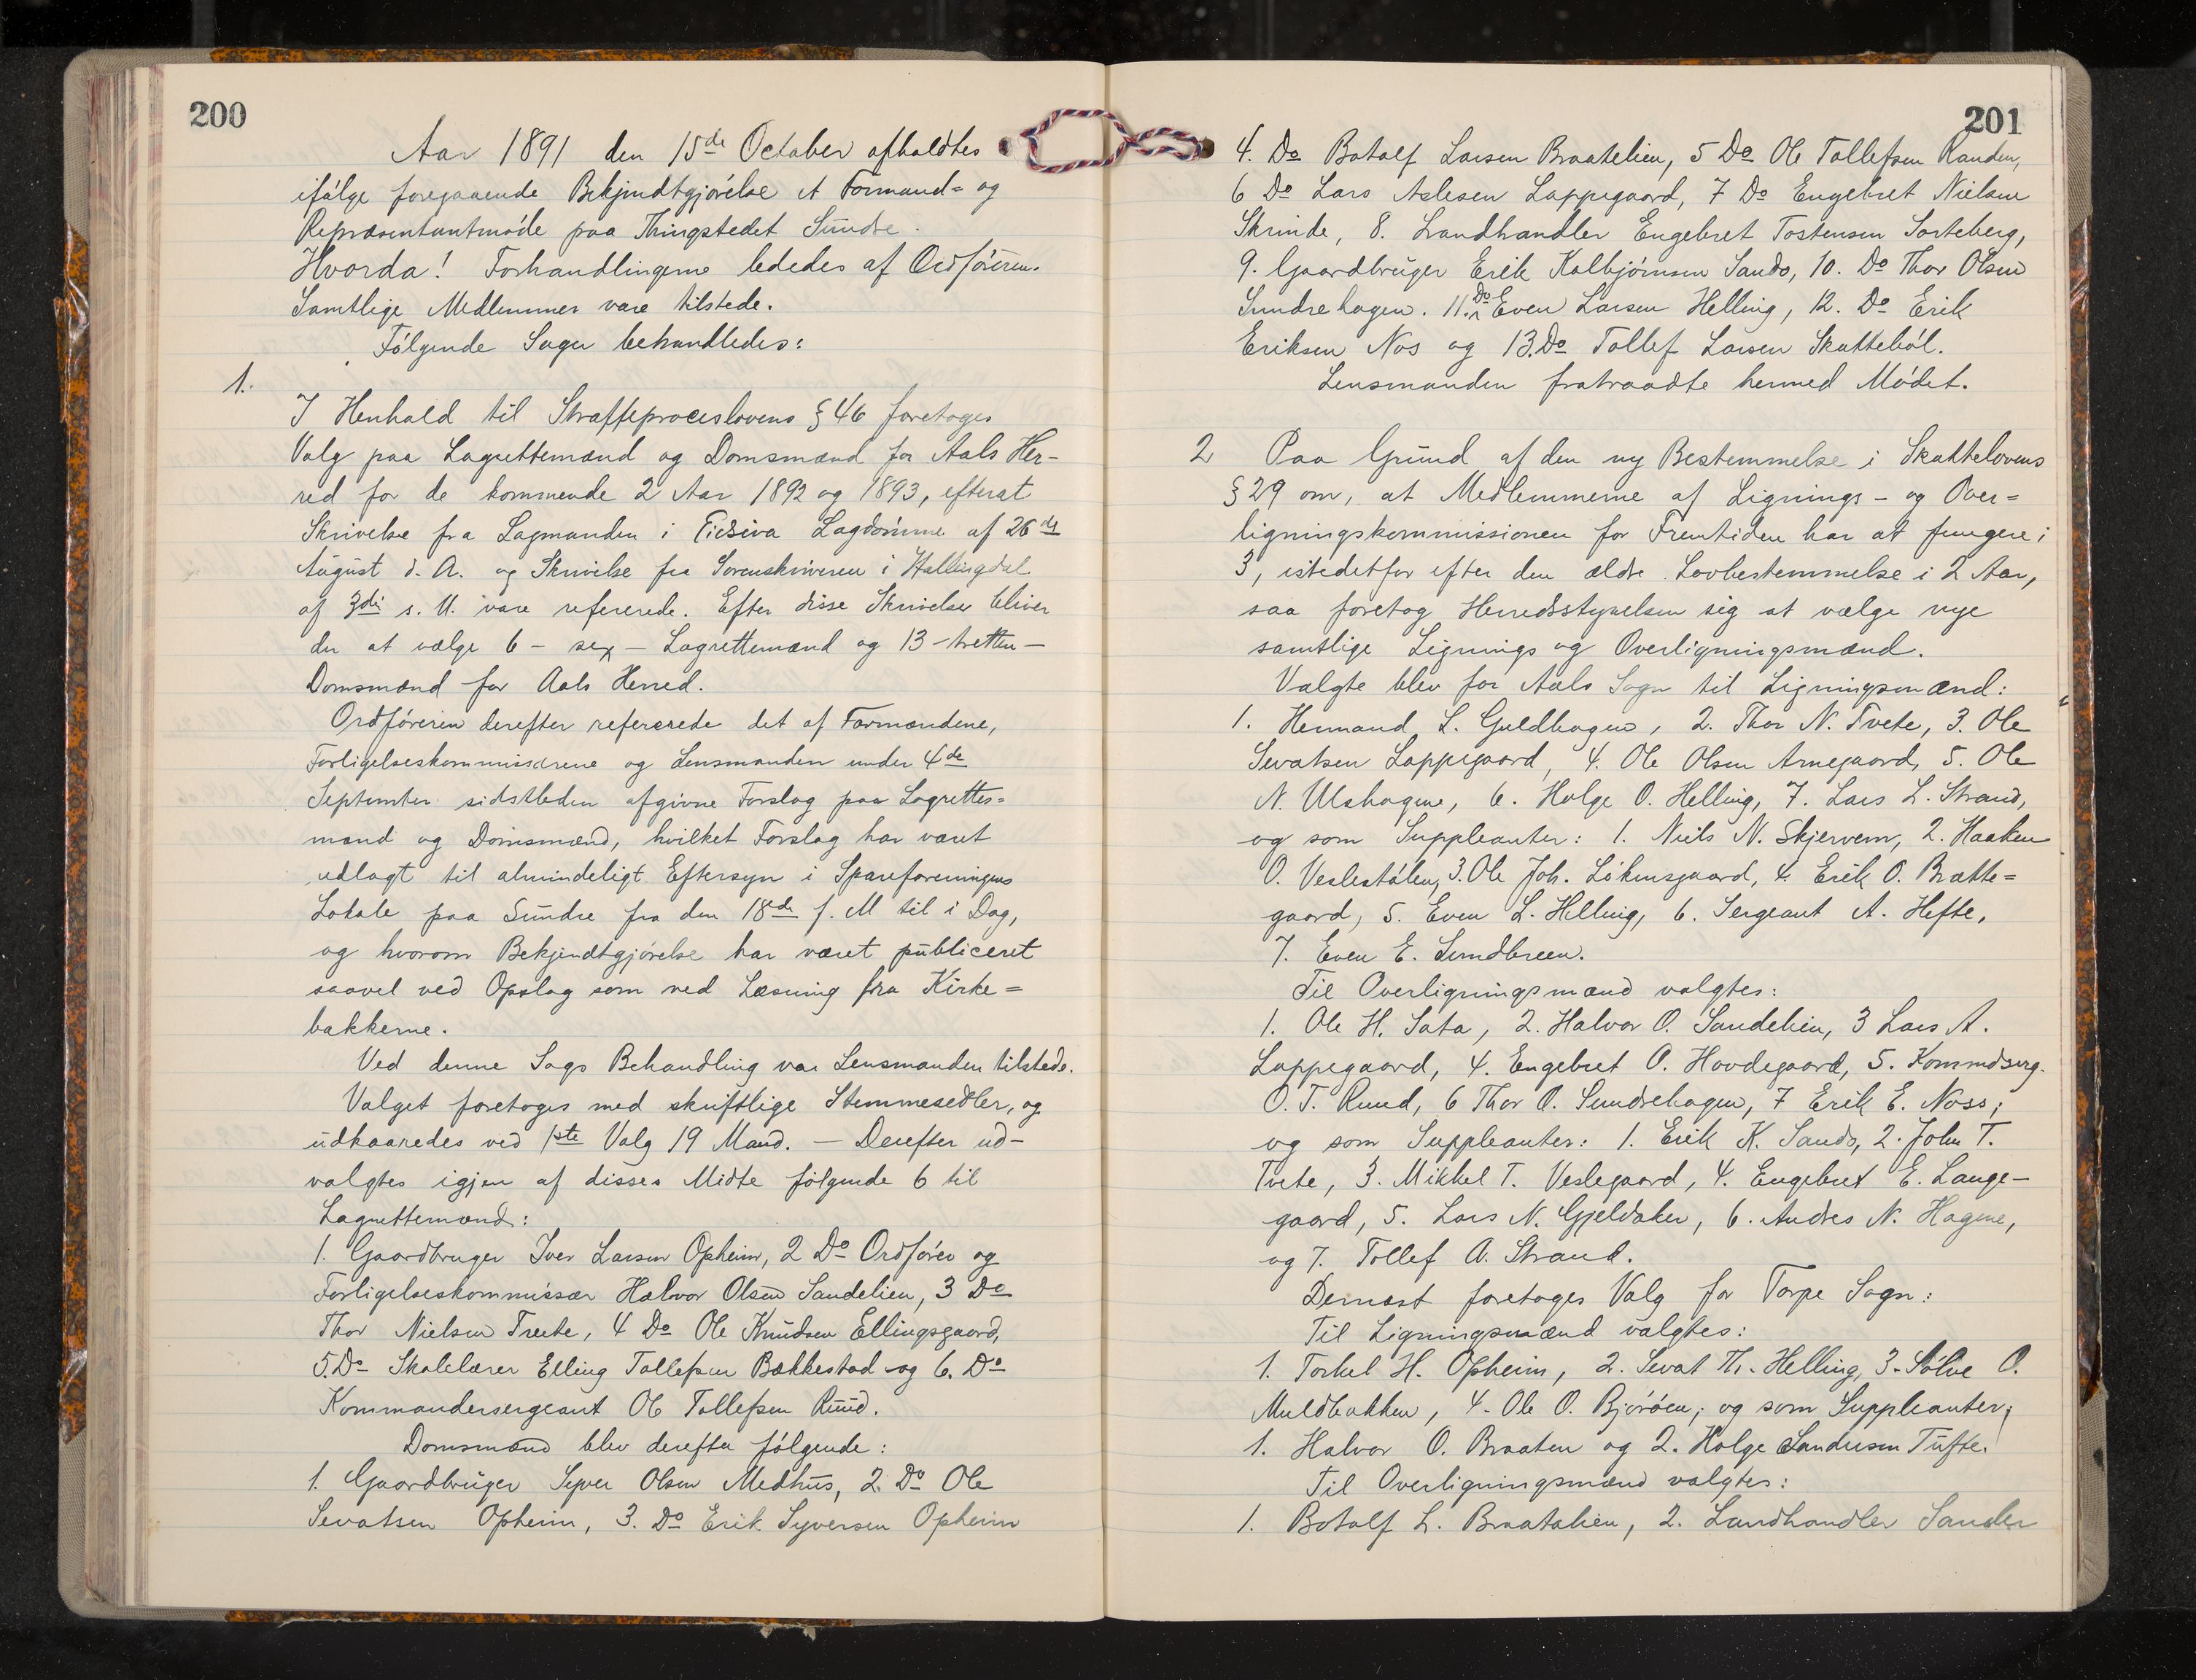 200
Aar 1891 den 15de October afholdtes
ifølge foregaaende Bekjendtgjørelse et Formand= og
Repræsentantmøde paa Thingstedet Sundre.
Hvorda! Forhandlingerne lededes af Ordføreren.
Samtlige Medlemmer vare tilstede.
Følgende Sager behandledes:
1.
I Henhold til Straffeproceslovens § 46 foretoges
Valg paa Lagrettemænd og Domsmænd for Aals Her-
red for de kommende 2 Aar 1892 og 1893, efterat
Skrivelse fra Lagmanden i Eidsiva Lagdømme af 26de
August d. A. og Skrivelse fra Sorenskriveren i Hallingdal
af 3die s. M. vare refererede. Efter disse Skrivelser bliver
der at vælge 6 - sex - Lagrettemænd og 13 - tretten -
Domsmænd for Aals Herred.
Ordføreren derefter refererede det af Formændene,
Forligelseskommissærene og Lensmanden under 4de
September sidstleden afgivne Forslag paa Lagrettes=
mænd og Domsmænd, hvilket Forslag har været
udlagt til almindeligt Eftersyn i Spareforeningens
Lokale paa Sundre fra den 18de f. M til i Dag,
og hvorom Bekjendtgjørelse har været publiceret
saavel ved Opslag som ved Læsning fra Kirke=
bakkerne.
Ved denne Sags Behandling var Lensmanden tilstede.
Valget foretoges med skriftlige Stemmesedler, og
udkaaredes ved 1ste Valg 19 Mand. - Derefter ud-
valgtes igjen af disses Midte følgende 6 til
Lagrettemænd:
1. Gaardbruger Iver Larsen Opheim, 2 Do Ordfører og
Forligelseskommissær Halvor Olsen Sandelien, 3 Do
Thor Nielsen Tveite, 4 Do Ole Knudsen Ellingsgaard,
5. Do Skolelærer Elling Tollefsen Bækkestad og 6. Do
Kommandersergeant Ole Tollefsen Ruud.
Domsmænd blev derefter følgende:
1. Gaardbruger Syver Olsen Medhus, 2. Do Ole
Sevatsen Opheim, 3. Do Erik Syversen Opheim
201
4. Do Botolf Larsen Braatelien, 5 Do Ole Tollefsen Randen,
6 Do Lars Aslesen Lappegaard, 7 Do Engebret Nielsen
Skrinde, 8. Landhandler Engebret Tostensen Sorteberg,
9. Gaardbruger Erik Kolbjørnsen Sando, 10. Do Thor Olsen
Sundrehagen. 11. Do Even Larsen Helling, 12. Do Erik
Eriksen Nos og 13. Do Tollef Larsen Skattebøl.
Lensmanden fratraadte hermed Mødet.
2 Paa Grund af den ny Bestemmelse i Skattelovens
§ 29 om, at Medlemmerne af Lignings- og Over=
ligningskommissionen for Fremtiden har at fungere i
3, istedetfor efter den ældre Lovbestemmelse i 2 Aar,
saa foretog Herredsstyrelsen sig at vælge nye
samtlige Lignings og Overligningsmænd.
Valgte blev for Aals Sogn til Ligningsmænd:
1. Hermand L. Guldhagen, 2. Thor N. Tvete, 3. Ole
Sevatsen Lappegaard, 4. Ole Olsen Arnegaard, 5. Ole
N. Ulshagene, 6. Holge O. Helling, 7. Lars L. Strand,
og som Suppleanter: 1. Niels N. Skjervem, 2. Haaken
O. Veslestølen, 3. Ole Joh. Løkensgaard, 4. Erik O. Brætte=
gaard, 5. Even L. Helling, 6. Sergeant A. Hefte,
7. Even E. Sundbreen.
Til Overligningsmænd valgtes:
1. Ole H. Sata, 2. Halvor O. Sandelien, 3 Lars A.
Lappegaard, 4. Engebret O. Hovdegaard, 5. Kommdserg.
O. T. Ruud, 6 Thor O. Sundrehagen, 7 Erik E. Noss;
og som Suppleanter: 1. Erik K. Sando, 2. John T.
Tvete, 3. Mikkel T. Veslegaard, 4. Engebret E. Lange-
gaard, 5. Lars N. Gjeldaker, 6. Andres N. Hagene,
og 7. Tollef A. Strand.
Dernæst foretoges Valg for Torpe Sogn:
Til Ligningsmænd valgtes:
1. Torkel H. Opheim, 2. Sevat Th. Helling, 3. Sølve O.
Muldbakken, 4. Ole O. Bjørøen; og som Suppleanter;
1. Halvor O. Braaten og 2. Holge Sandersen Tufte.
Til Overligningsmænd valgtes:
1. Botolf L. Braatalien, 2. Landhandler Sander